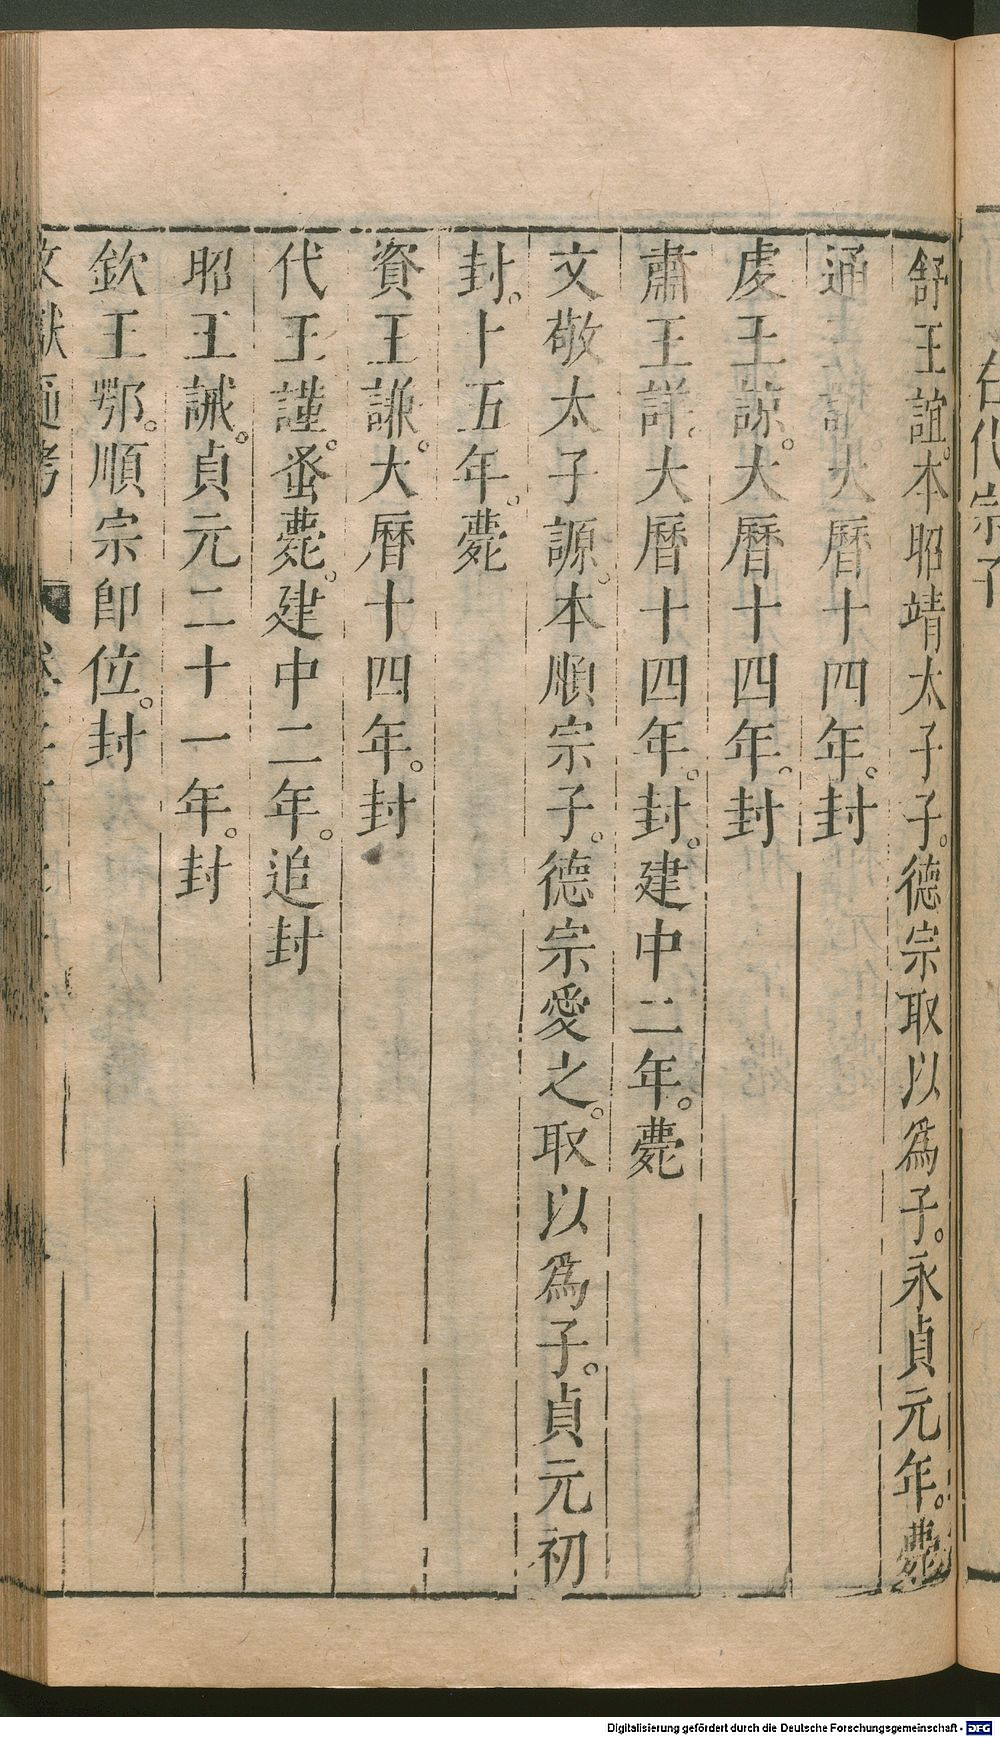 右代宗子
舒王誼。本昭靖太子子。德宗取以爲子。永貞元年。薨
通王諶。大曆十四年。封
虔王諒。大曆十四年。封
肅王詳。大曆十四年。封。建中二年。薨
文敬太子謜。本順宗子。德宗愛之。取以爲子。貞元初
封。十五年。薨
資王謙。大曆十四年。封
代王諲。蚤薨。建中二年。追封
昭王誡。貞元二十一年。封
欽王鄂。順宗卽位。封
文獻通考
Digitalisierung gefördert durch die Deutsche Forschungsgemeinschaft - DFG